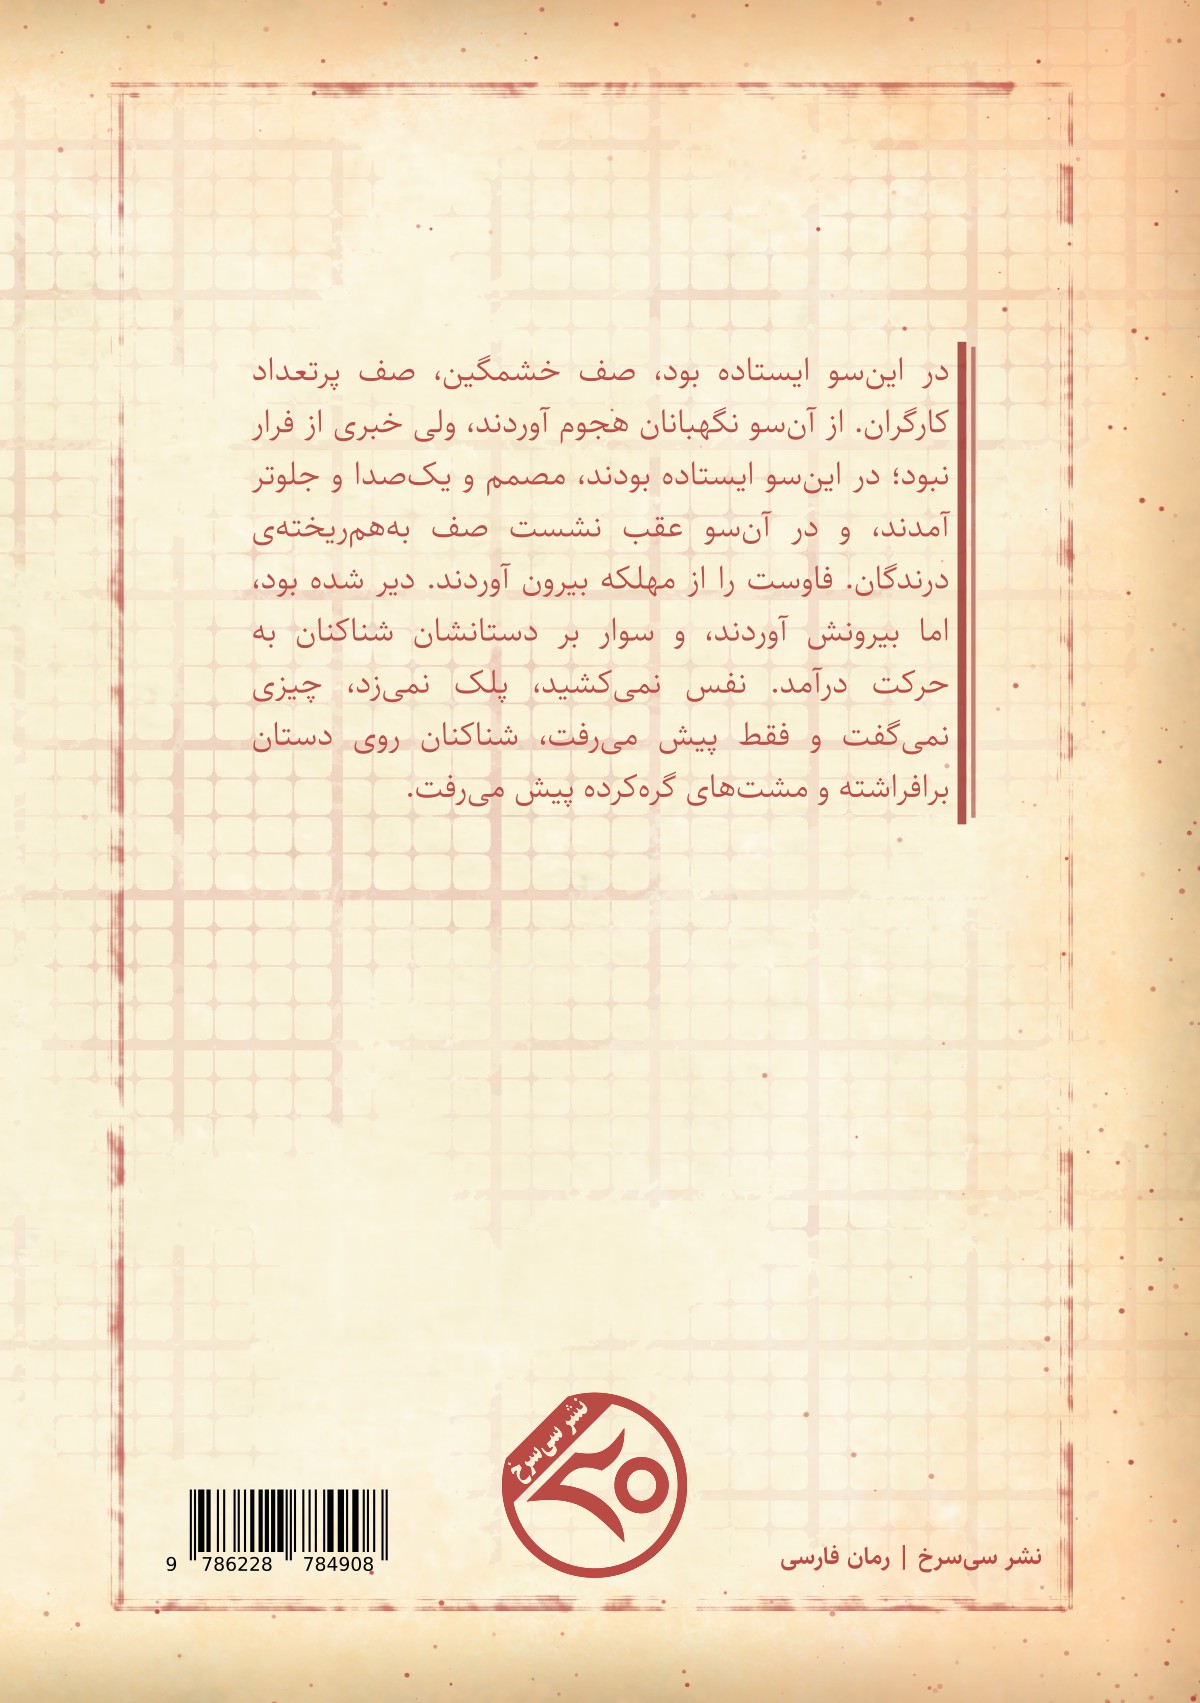 در این‌سو ایستاده بود، صف خشمگین، صف پرتعداد
کارگران. از آن‌سو نگهبانان هجوم آوردند، ولی خبری از فرار
نبود؛ در این‌سو ایستاده بودند، مصمم و یک‌صدا و جلوتر
آمدند، و در آن‌سو عقب نشست صف به‌هم‌ریخته‌ی
درندگان. فاوست را از مهلکه بیرون آوردند. دیر شده بود،
اما بیرونش آوردند، و سوار بر دستانشان شناکنان به
حرکت درآمد. نفس نمی‌کشید، پلک نمی‌زد، چیزی
نمی‌گفت و فقط پیش می‌رفت، شناکنان روی دستان
برافراشته و مشت‌های گره‌کرده پیش می‌رفت.
نشر سی‌سرخ
۳۰
نشر سی‌سرخ | رمان فارسی
9 786228 784908